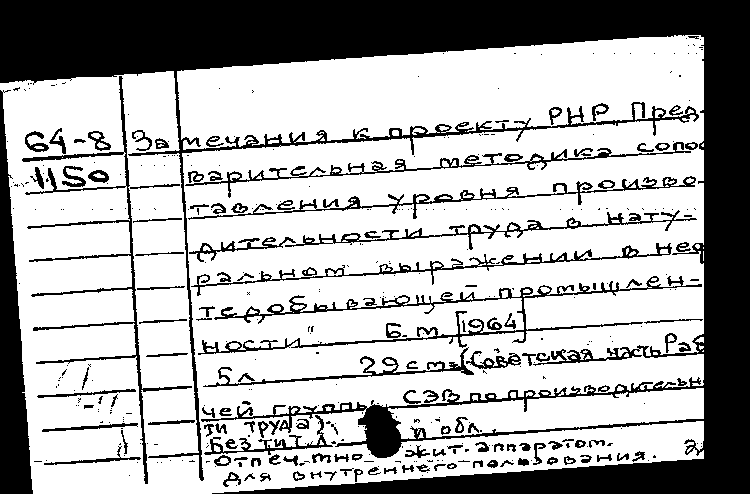 64-8 Замечания к проекту РНР „Пред-
1150 варительная методика сопос
тавления уровня произво-
дительности труда в нату-
ральном выражении в неф
тедобывающей промышлен-
ности". Б.м, [1964]
5 л. 29 см. (Советская часть Раб
чей группы СЭВ по производительн
ти труда)
Без тит. л. и обл.
Отпеч. множит. аппаратом.
Для внутреннего пользования.